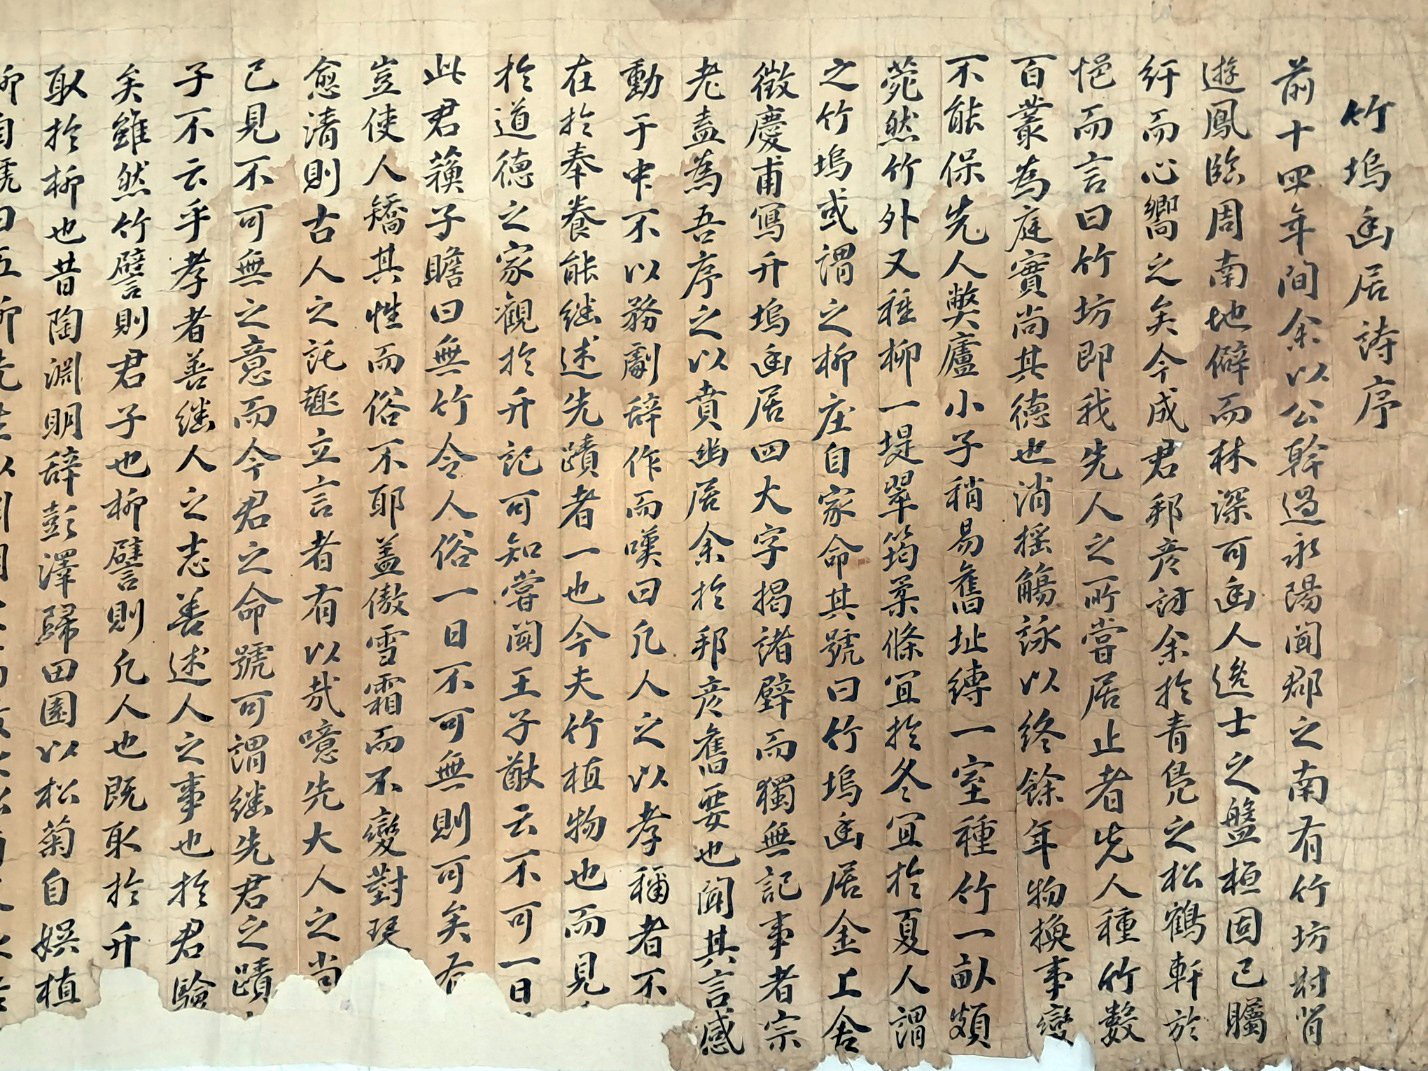 竹塢幽居詩序
前十四年間余以公幹過永陽聞郡之南有竹坊村肖
遊鳳臨周南地僻而林深可幽人逸士之盤桓固已矚
紆而心嚮之矣今成君邦彦訪余於青鳧之松鶴軒於
悒而言曰竹坊即我先人之所嘗居止者先人種竹數
百叢為庭實尚其德也消搖觴詠以終餘年物換事變
不能保先人弊廬小子稍易舊址縳一室種竹一畝頗
菀然竹外又種柳一堤翠筠柔條宜於冬宜於夏人謂
之竹塢或謂之柳庄自家命其號曰竹塢幽居金上舍
徵慶甫寫竹塢幽居四大字揭諸壁而獨無記事者宗
老盍為吾序之以賁幽居余於邦彦舊要也聞其言感
動于中不以務劇辞作而嘆曰凡人之以孝稱者不
在於奉養能継述先蹟者一也今夫竹植物也而見
於道德之家觀於竹記可知嘗聞王子猷云不可一日
此君蘓子瞻曰無竹令人俗一日不可無則可矣
豈使人矯其性而俗不耶盖傲雪霜而不變對
愈清則古人之託趣立言者有以哉噫先大人之尚
已見不可無之意而今君之命號可謂継先君之蹟
子不云乎孝者善継人之志善述人之事也於君驗
矣雖然竹譬則君子也柳譬則凡人也既取於竹
取於柳也昔陶淵明辞彭澤歸田園以松菊自娯植
柳自號曰五柳先生以